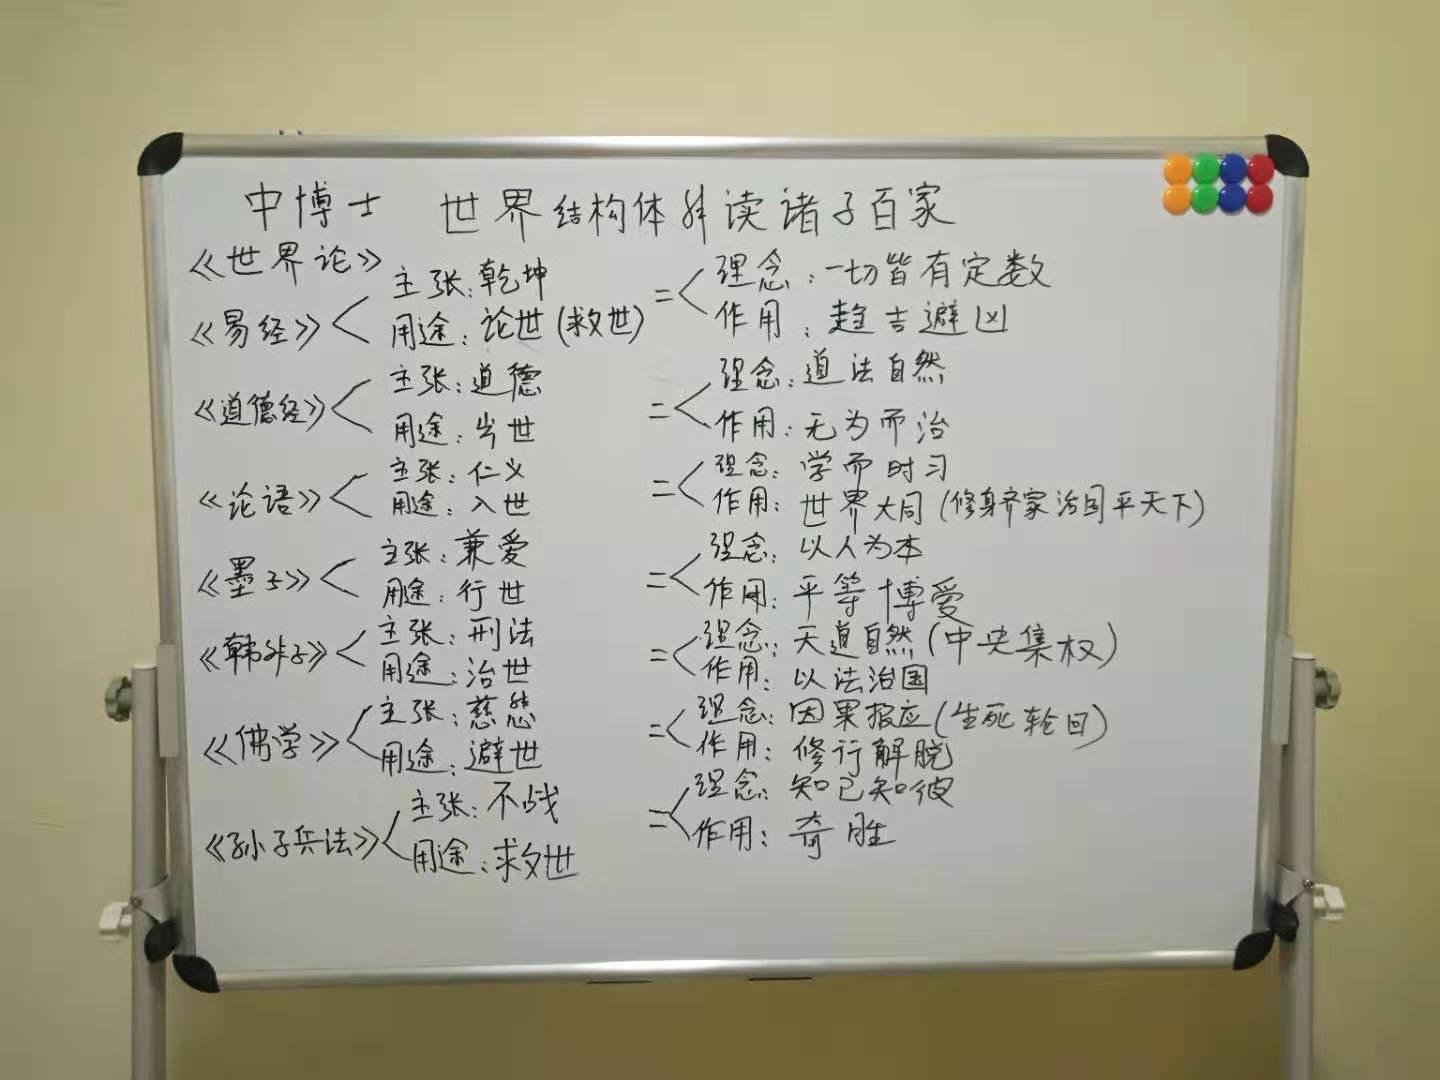 中博士 世界结构体解读诸子百家
《世界论》
《易经》 主张：乾坤 = 理念：一切皆有定数
用途：论世（救世） 作用：趋吉避凶
《道德经》 主张：道德 = 理念：道法自然
用途：出世 作用：无为而治
《论语》 主张：仁义 = 理念：学而时习
用途：入世 作用：世界大同（修身齐家治国平天下）
《墨子》 主张：兼爱 = 理念：以人为本
用途：行世 作用：平等博爱
《韩非子》 主张：刑法 = 理念：天道自然（中央集权）
用途：治世 作用：以法治国
《佛学》 主张：慈悲 = 理念：因果报应（生死轮回）
用途：避世 作用：修行解脱
《孙子兵法》 主张：不战 = 理念：知已知彼
用途：救世 作用：奇胜